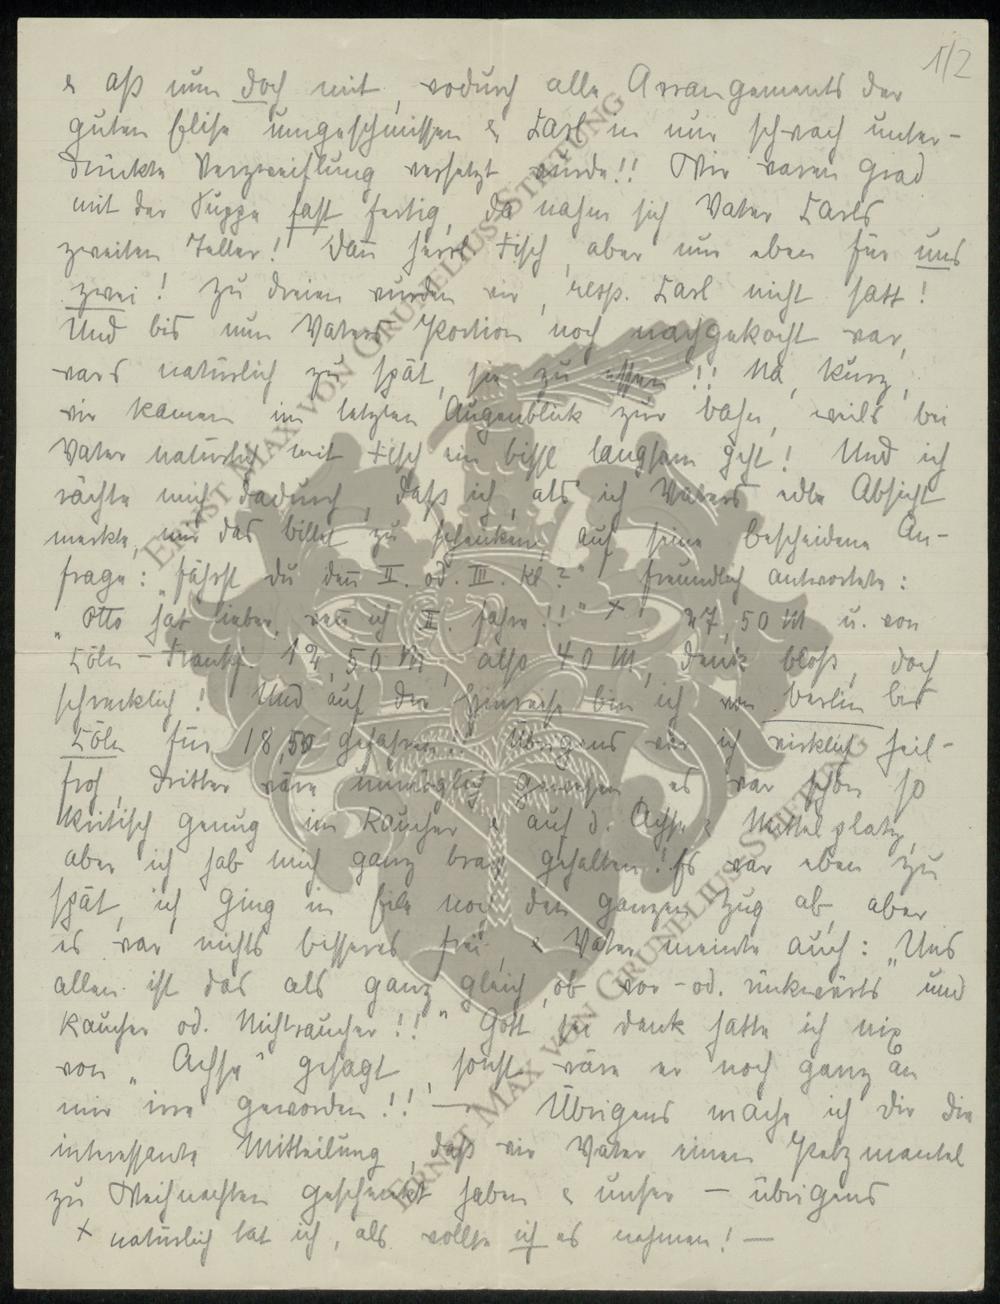 1/2
& aß nun doch mit, wodurch alle Arrangements der
guten Elise umgeschmissen & Carl in nur schwach unter-
drückte Verzweiflung versetzt wurde!! Wir waren grad
mit der Suppe fast fertig, da nahm sich Vater Carls
zweiten Teller! Dann herrl. Fisch, aber nur eben für uns
zwei! Zu dreien wurden wir, resp. Carl nicht satt!
Und bis nun Vaters Portion noch nachgekocht war,
wars natürlich zu spät, sie zu essen!! Na, kurz,
wir kamen im letzten Augenblick zur Bahn, weils bei
Vater natürlich mit Fisch ein bissl langsam geht! Und ich
rächte mich dadurch, daß ich, als ich Vaters edle Absicht
merkte, mir das Billet zu schenken, auf seine bescheidene An-
frage: "Fährst du denn II. od. III. Kl.?" freundlich antwortete:
"Otto hat lieber, wenn ich II. fahre!!" x 27,50 M u. von
Cöln - Frankf. 12,50 M, also 40 M, denk bloß, doch
schrecklich! Und auf der Hinreise bin ich von Berlin bis
Cöln für 18,50 gefahren!! Übrigens war ich wirklich heil-
froh, Dritter wäre unmöglich gewesen, es war schon so
kritisch genug im Raucher & auf d. Achse & Mittelplatz,
aber ich hab mich ganz brav gehalten! Es war eben zu
spät, ich ging in Eile noch den ganzen Zug ab, aber
es war nichts besseres frei, & Vater meinte auch: "Uns
allen ist das als ganz gleich, ob vor- od. rückwärts und
Raucher od. Nichtraucher!!" Gott sei dank hatte ich nix
von "Achse" gesagt, sonst wäre er noch ganz an
mir irre geworden!! — Übrigens mache ich dir die
interessante Mitteilung, daß wir Vater einen Pelzmantel
zu Weihnachten geschenkt haben & unser — übrigens
x natürlich tat ich, als wollte ich es nehmen! —
ERNST MAX VON GRUNELIUS-STIFTUNG
ERNST MAX VON GRUNELIUS-STIFTUNG